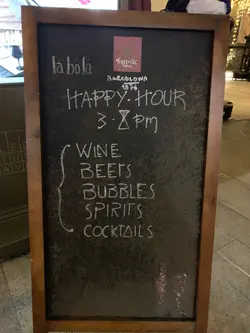 la bôla
BARCELONA
1876
HAPPY·HOUR
3·8 pm
WINE
BEERS
BUBBLES
SPIRITS
COCKTAILS